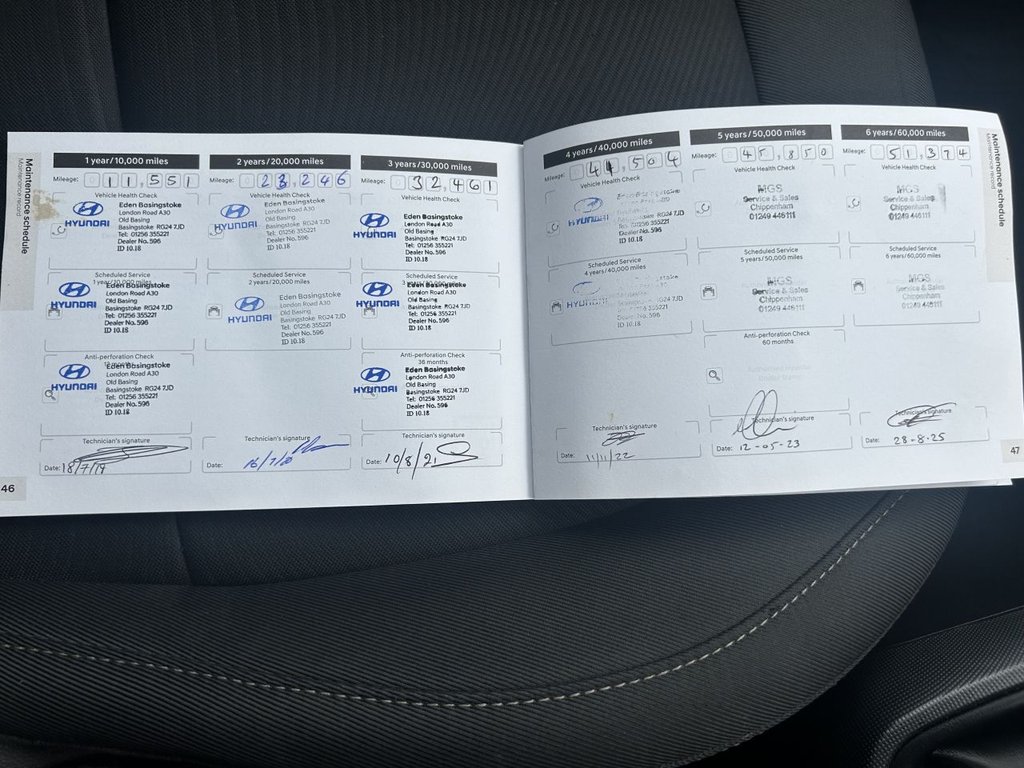 Maintenance schedule
Maintenance record
1 year/10,000 miles
Mileage: 11,551
Vehicle Health Check
HYUNDAI
Eden Basingstoke
London Road A30
Old Basing
Basingstoke RG24 7JD
Tel: 01256 355221
Dealer No. 596
ID 10.18
Scheduled Service
1 year/10,000 miles
HYUNDAI
Eden Basingstoke
London Road A30
Old Basing
Basingstoke RG24 7JD
Tel: 01256 355221
Dealer No. 596
ID 10.18
Anti-perforation Check
12 months
HYUNDAI
Eden Basingstoke
London Road A30
Old Basing
Basingstoke RG24 7JD
Tel: 01256 355221
Dealer No. 596
ID 10.18
Technician's signature
Date: 18/7/19
46
2 years/20,000 miles
Mileage: 23,246
Vehicle Health Check
HYUNDAI
Eden Basingstoke
London Road A30
Old Basing
Basingstoke RG24 7JD
Tel: 01256 355221
Dealer No. 596
ID 10.18
Scheduled Service
2 years/20,000 miles
HYUNDAI
Eden Basingstoke
London Road A30
Old Basing
Basingstoke RG24 7JD
Tel: 01256 355221
Dealer No. 596
ID 10.18
Technician's signature
Date:
3 years/30,000 miles
Mileage: 32,461
Vehicle Health Check
HYUNDAI
Eden Basingstoke
London Road A30
Old Basing
Basingstoke RG24 7JD
Tel: 01256 355221
Dealer No. 596
ID 10.18
Scheduled Service
HYUNDAI
Eden Basingstoke
London Road A30
Old Basing
Basingstoke RG24 7JD
Tel: 01256 355221
Dealer No. 596
ID 10.18
Anti-perforation Check
36 months
HYUNDAI
Eden Basingstoke
London Road A30
Old Basing
Basingstoke RG24 7JD
Tel: 01256 355221
Dealer No. 596
ID 10.18
Technician's signature
Date: 10/8/21
4 years/40,000 miles
Mileage: 44,504
Vehicle Health Check
HYUNDAI
RG24 7JD
Tel: 01256 355221
Dealer No. 596
ID 10.18
Scheduled Service
4 years/40,000 miles
HYUNDAI
RG24 7JD
Tel: 01256 355221
Dealer No. 596
ID 10.18
Technician's signature
Date: 11/11/22
5 years/50,000 miles
Mileage: 45,850
Vehicle Health Check
MGS
Service & Sales
Chippenham
01249 446111
Scheduled Service
5 years/50,000 miles
MGS
Service & Sales
Chippenham
01249 446111
Anti-perforation Check
60 months
Technician's signature
Date: 12-05-23
6 years/60,000 miles
Mileage: 51,374
Vehicle Health Check
MGS
Service & Sales
Chippenham
01249 446111
Scheduled Service
6 years/60,000 miles
MGS
Service & Sales
Chippenham
01249 446111
Technician's signature
Date: 28-8-25
Maintenance schedule
Maintenance record
47